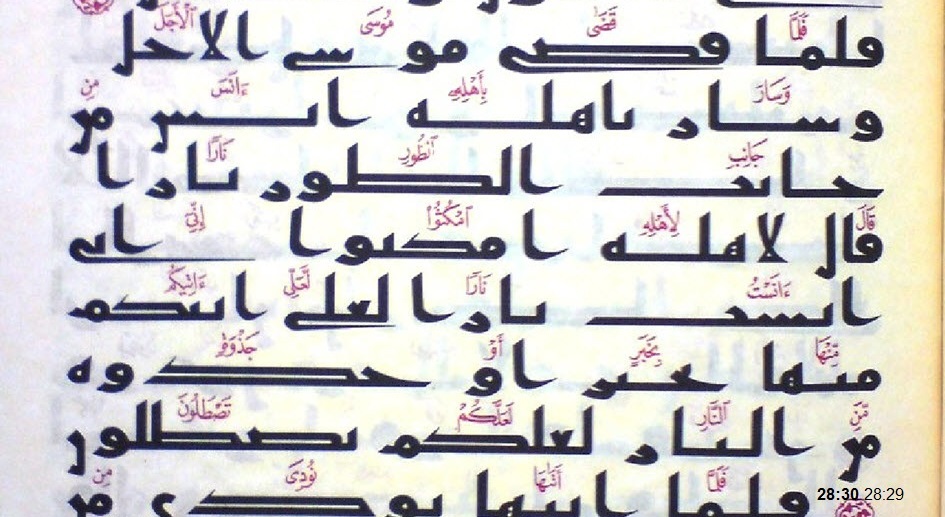 فَلَمَّا قَضَىٰ مُوسَى ٱلْأَجَلَ
فلما قضى موسى الاجل
وَسَارَ بِأَهْلِهِۦٓ ءَانَسَ مِن
وسار باهله انس من
جَانِبِ ٱلطُّورِ نَارًا
جانب الطور نارا
قَالَ لِأَهْلِهِ ٱمْكُثُوٓا۟ إِنِّىٓ
قال لاهله امكثوا انى
ءَانَسْتُ نَارًا لَّعَلِّىٓ ءَاتِيكُم
انست نارا لعلى اتيكم
مِّنْهَا بِخَبَرٍ أَوْ جَذْوَةٍ
منها بخبر او جذوه
مِّنَ ٱلنَّارِ لَعَلَّكُمْ تَصْطَلُونَ
من النار لعلكم تصطلون
فَلَمَّآ أَتَىٰهَا نُودِىَ مِن
فلما اتيها نودى من
28:30 28:29